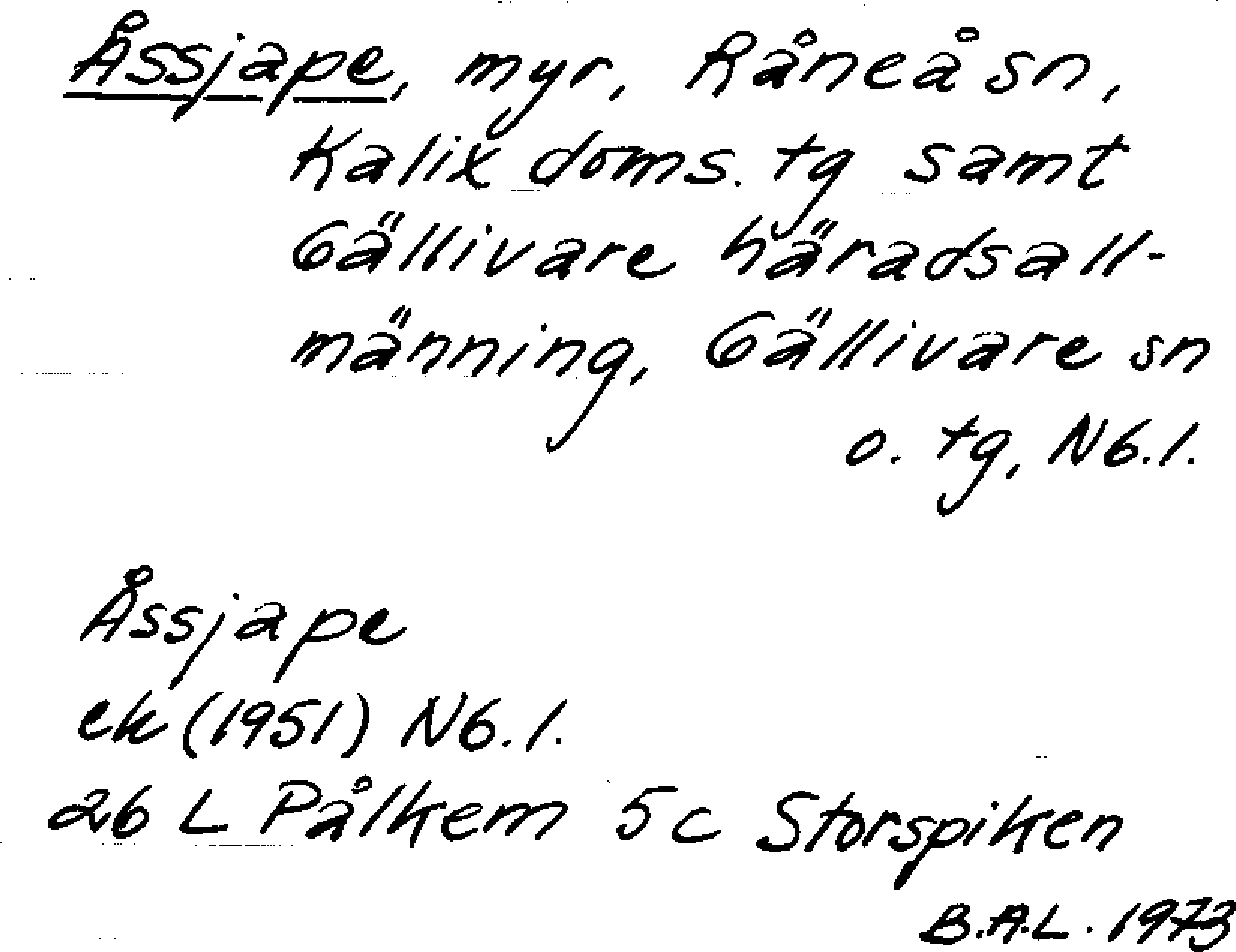 Åssjape, myr, Råneå sn,
Kalix doms. tg samt
Gällivare häradsall-
männing, Gällivare sn
o. tg, N6.l.
Åssjape
ek (1951) N6.l.
26 L Pålkem 5c Storspiken
B.A.L. 1973